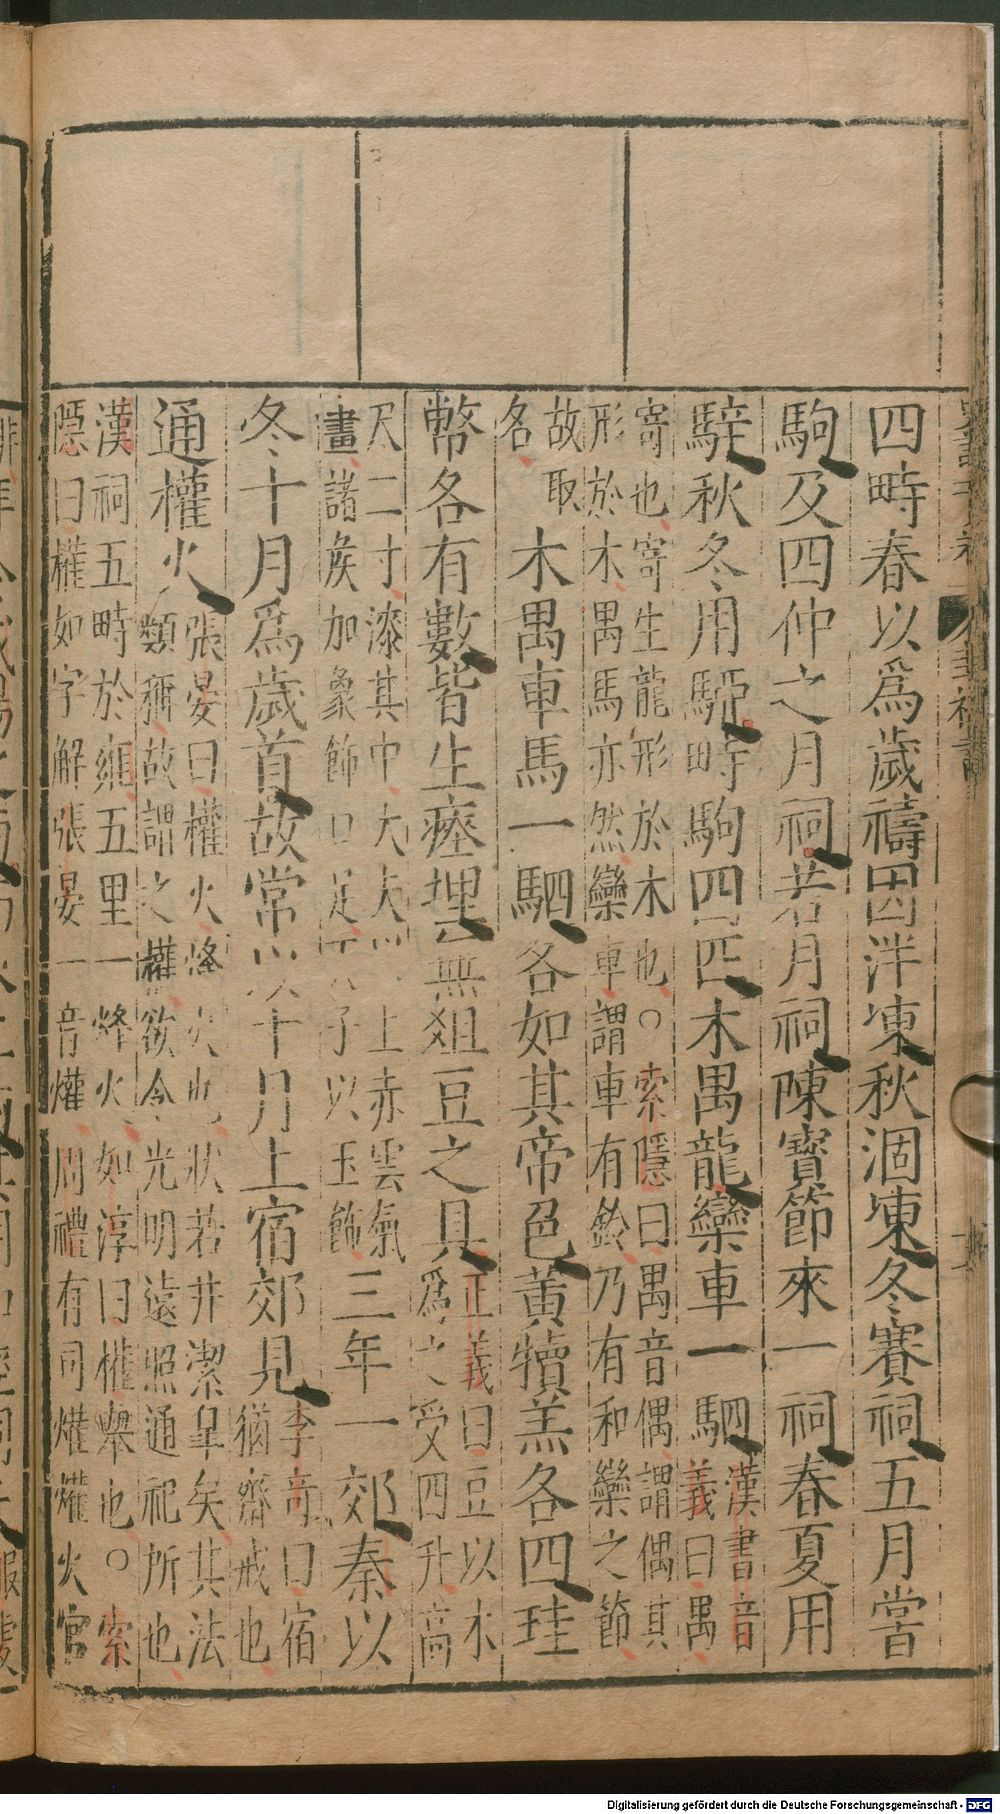 四畤春以爲歲禱因泮凍秋涸凍冬賽祠五月嘗
駒及四仲之月祠若月祠陳寶節來一祠春夏用
騂秋冬用駵畤駒四匹木禺龍欒車一駟漢書音
義曰禺
寄也寄生龍形於木也○索隱曰禺音偶謂偶其
形於木禺馬亦然欒車謂車有鈴乃有和欒之節
故取
名木禺車馬一駟各如其帝色黃犢羔各四珪
幣各有數皆生瘞埋無俎豆之具正義曰豆以木
爲之受四升高
尺二寸漆其中大夫以上赤雲氣
畫諸侯加象飾口足天子以玉飾三年一郊秦以
冬十月爲歲首故常以十月上宿郊見李竒曰宿
猶齋戒也
通權火張晏曰權火烽火也狀若井潔皐矣其法
類稱故謂之權欲令光明遠照通祀所也
漢祠五畤於雍五里一烽火如淳曰權舉也○索
隱曰權如字解張晏一音爟周禮有司爟爟火官
Digitalisierung gefördert durch die Deutsche Forschungsgemeinschaft - DFG